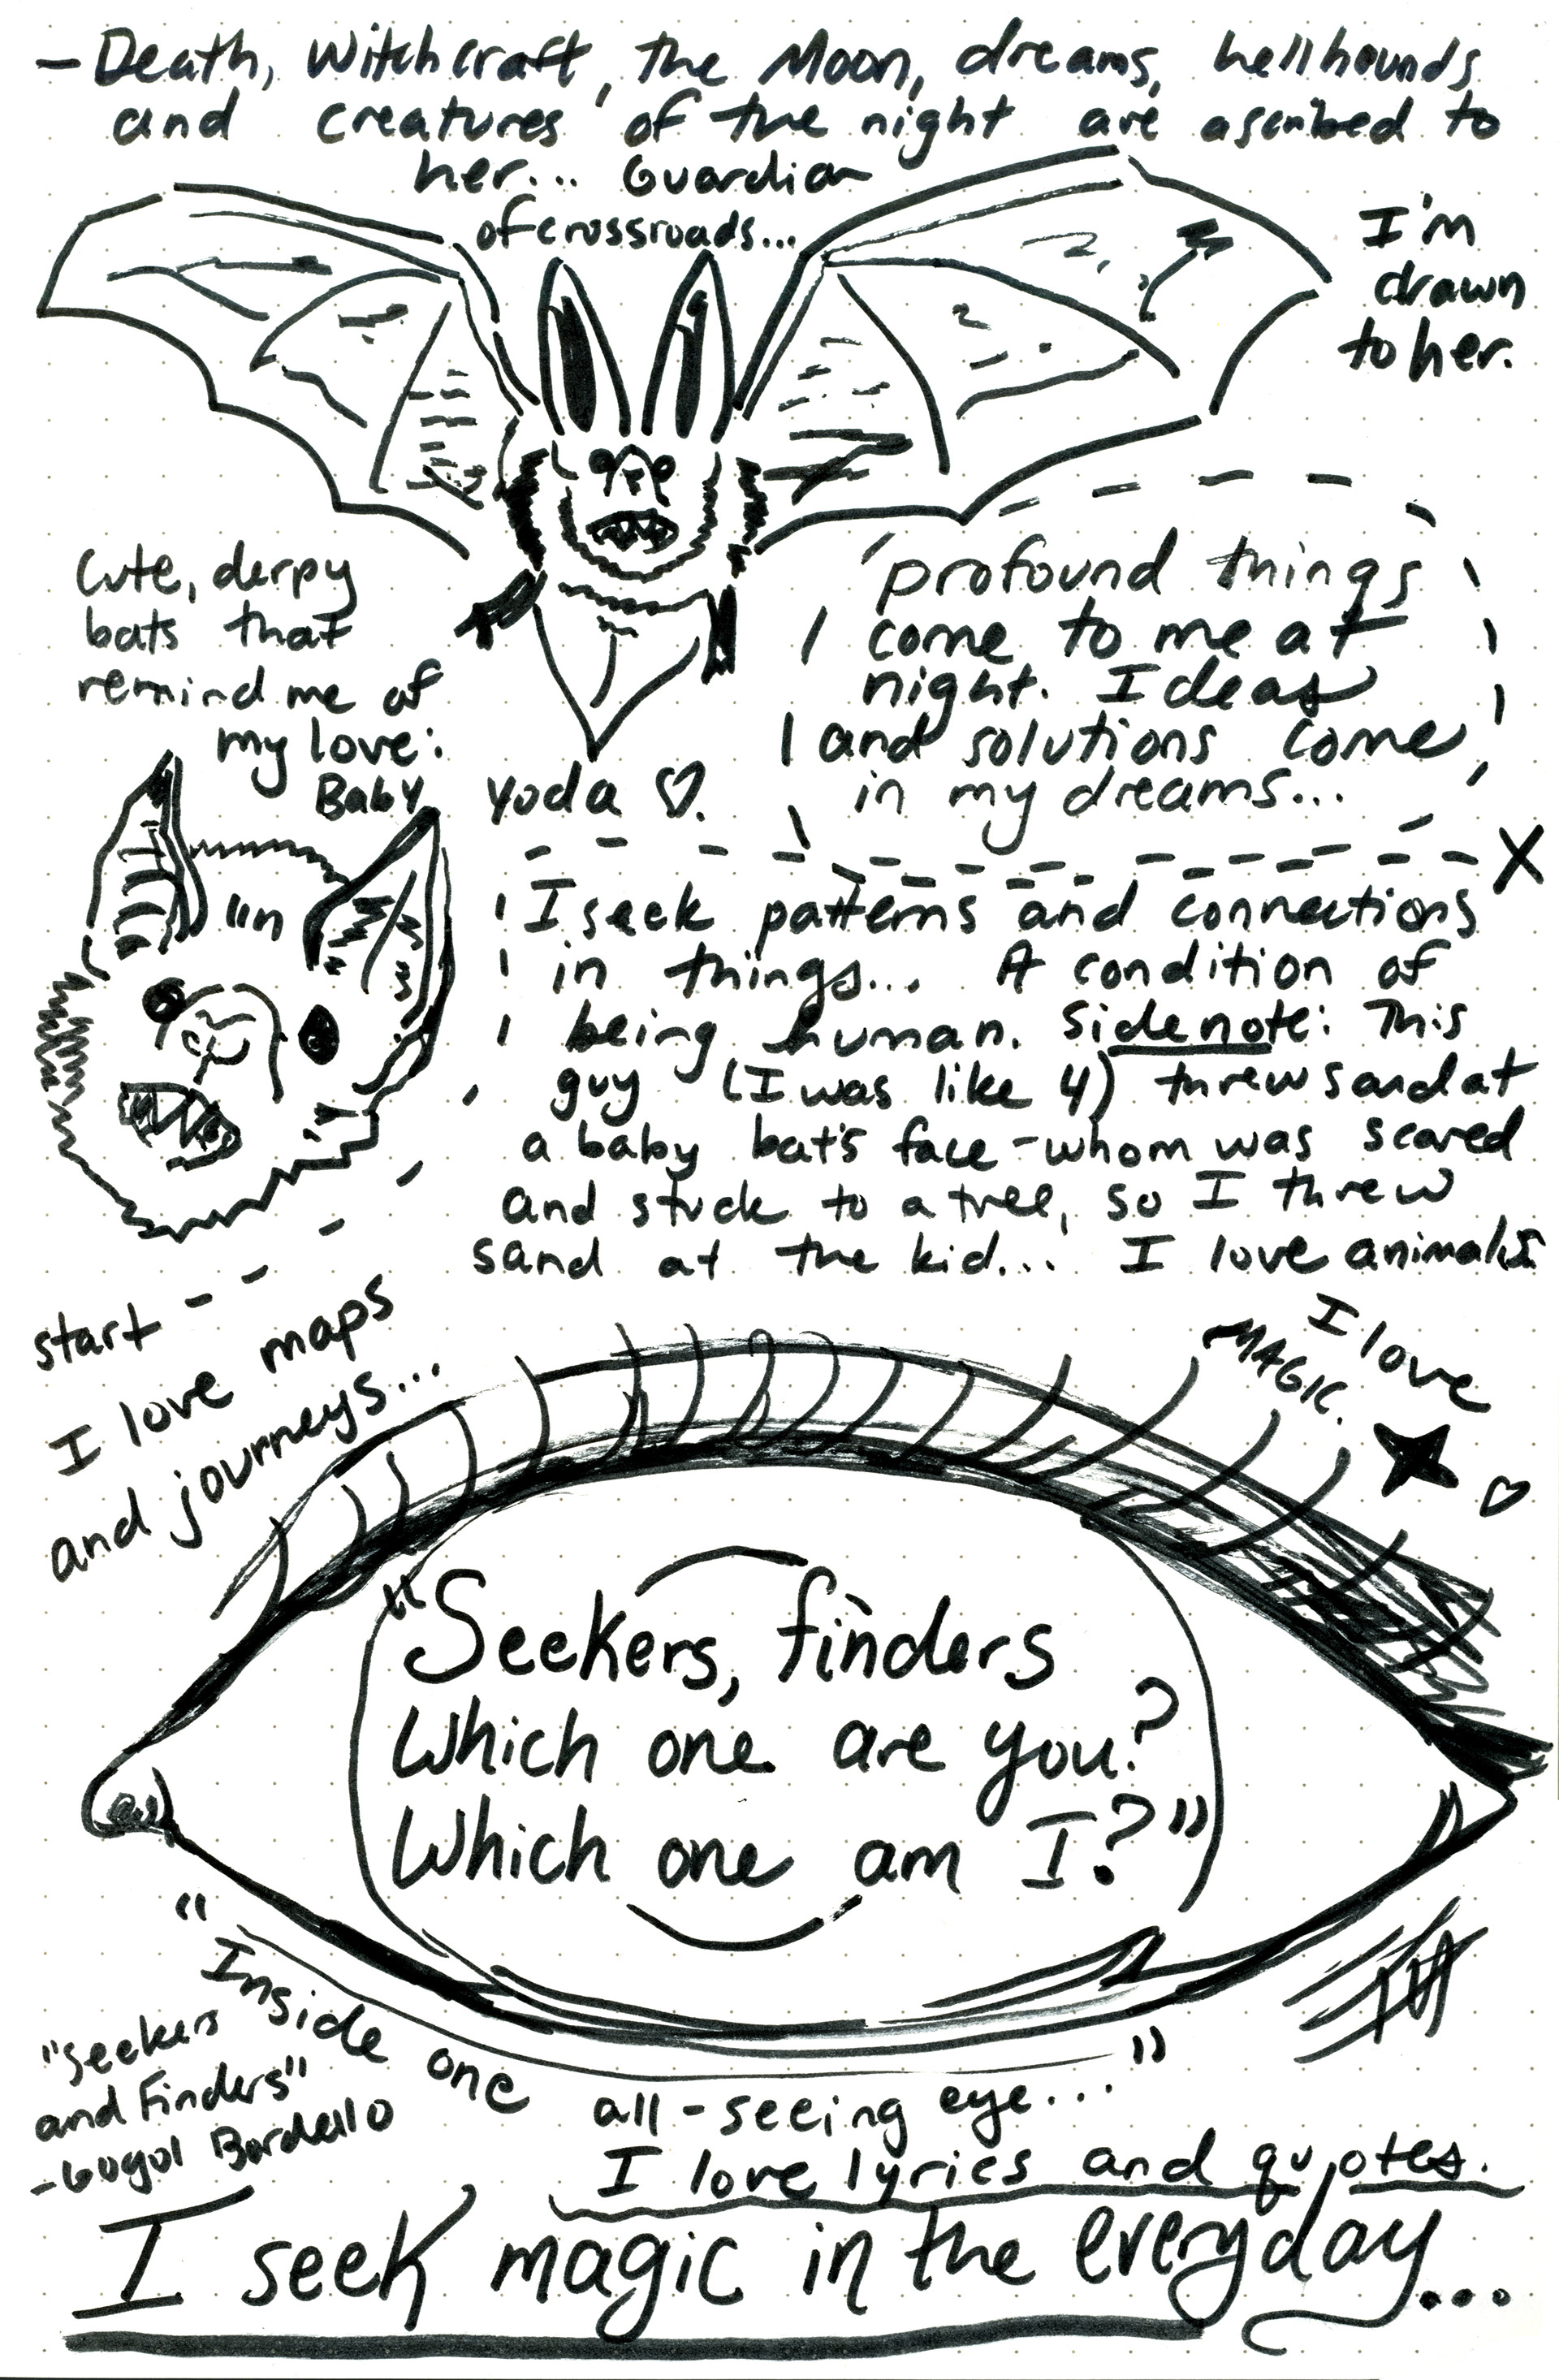 – Death, Witchcraft, the Moon, dreams, hellhounds
and creatures of the night are ascribed to
her... Guardian
of crossroads...
I'm
drawn
to her.
Cute, derpy
bats that
remind me of
my love:
Baby Yoda ♡.
profound things
come to me at
night. Ideas
and solutions come
in my dreams...
X
I seek patterns and connections
in things... A condition of
being human. Sidenote: This
guy (I was like 4) threw sand at
a baby bat's face - whom was scared
and stuck to a tree, so I threw
sand at the kid... I love animals
start
I love maps
and journeys...
I love
MAGIC.
"Seekers, finders
Which one are you?
Which one am I?"
"Inside one all-seeing eye..."
"Seekers
and Finders"
- Gogol Bordello
I love lyrics and quotes.
I seek magic in the everyday...